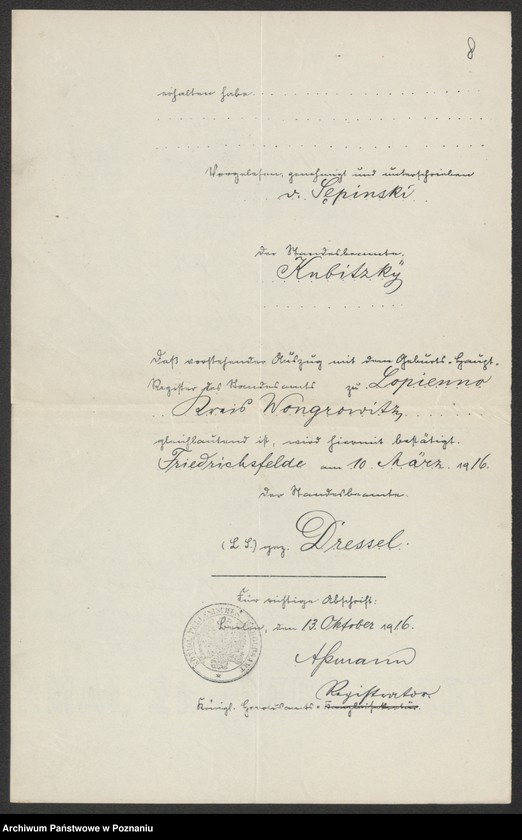 8
erhalten habe
Vorgelesen, genehmigt und unterschrieben
v. Sępinski
Der Standesbeamte.
Kubitzky
Daß vorstehender Auszug mit dem Geburts-Haupt-
Register des Standesamts zu Lopienno
Kreis Wongrowitz
gleichlautend ist, wird hiermit bestätigt.
Friedrichsfelde am 10. März 1916.
Der Standesbeamte.
(L. S.) gez. Dressel.
Für richtige Abschrift:
Berlin, den 13. Oktober 1916.
Aßmann
Registrator
Königl. Heroldsamts-
Archiwum Państwowe w Poznaniu